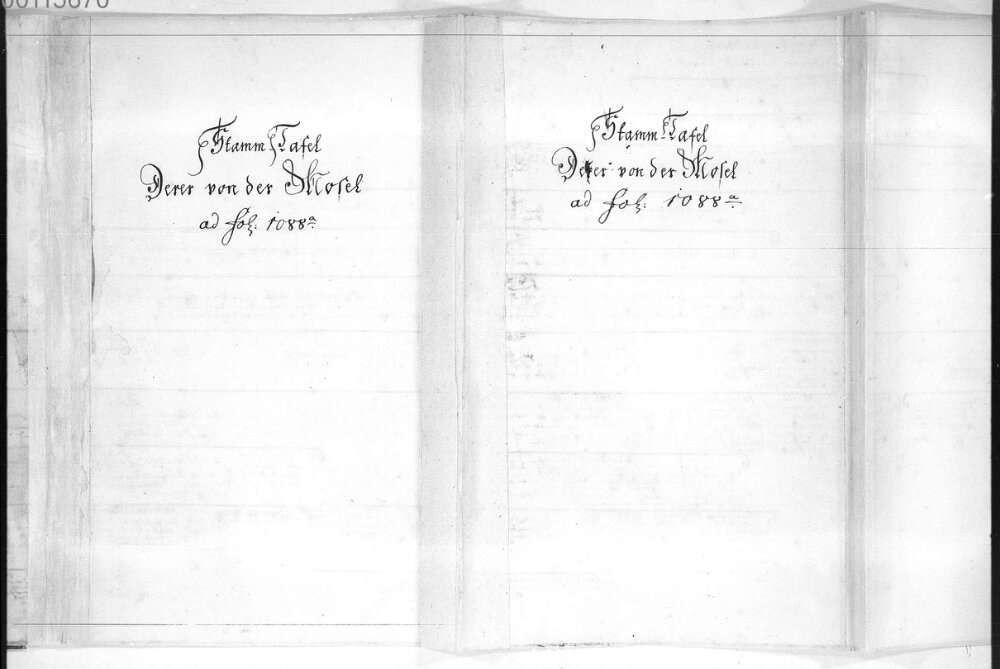 Stamm-Tafel
Derer von der Mosel
ad fol: 1088a.
Stamm-Tafel
Derer von der Mosel
ad fol: 1088a.